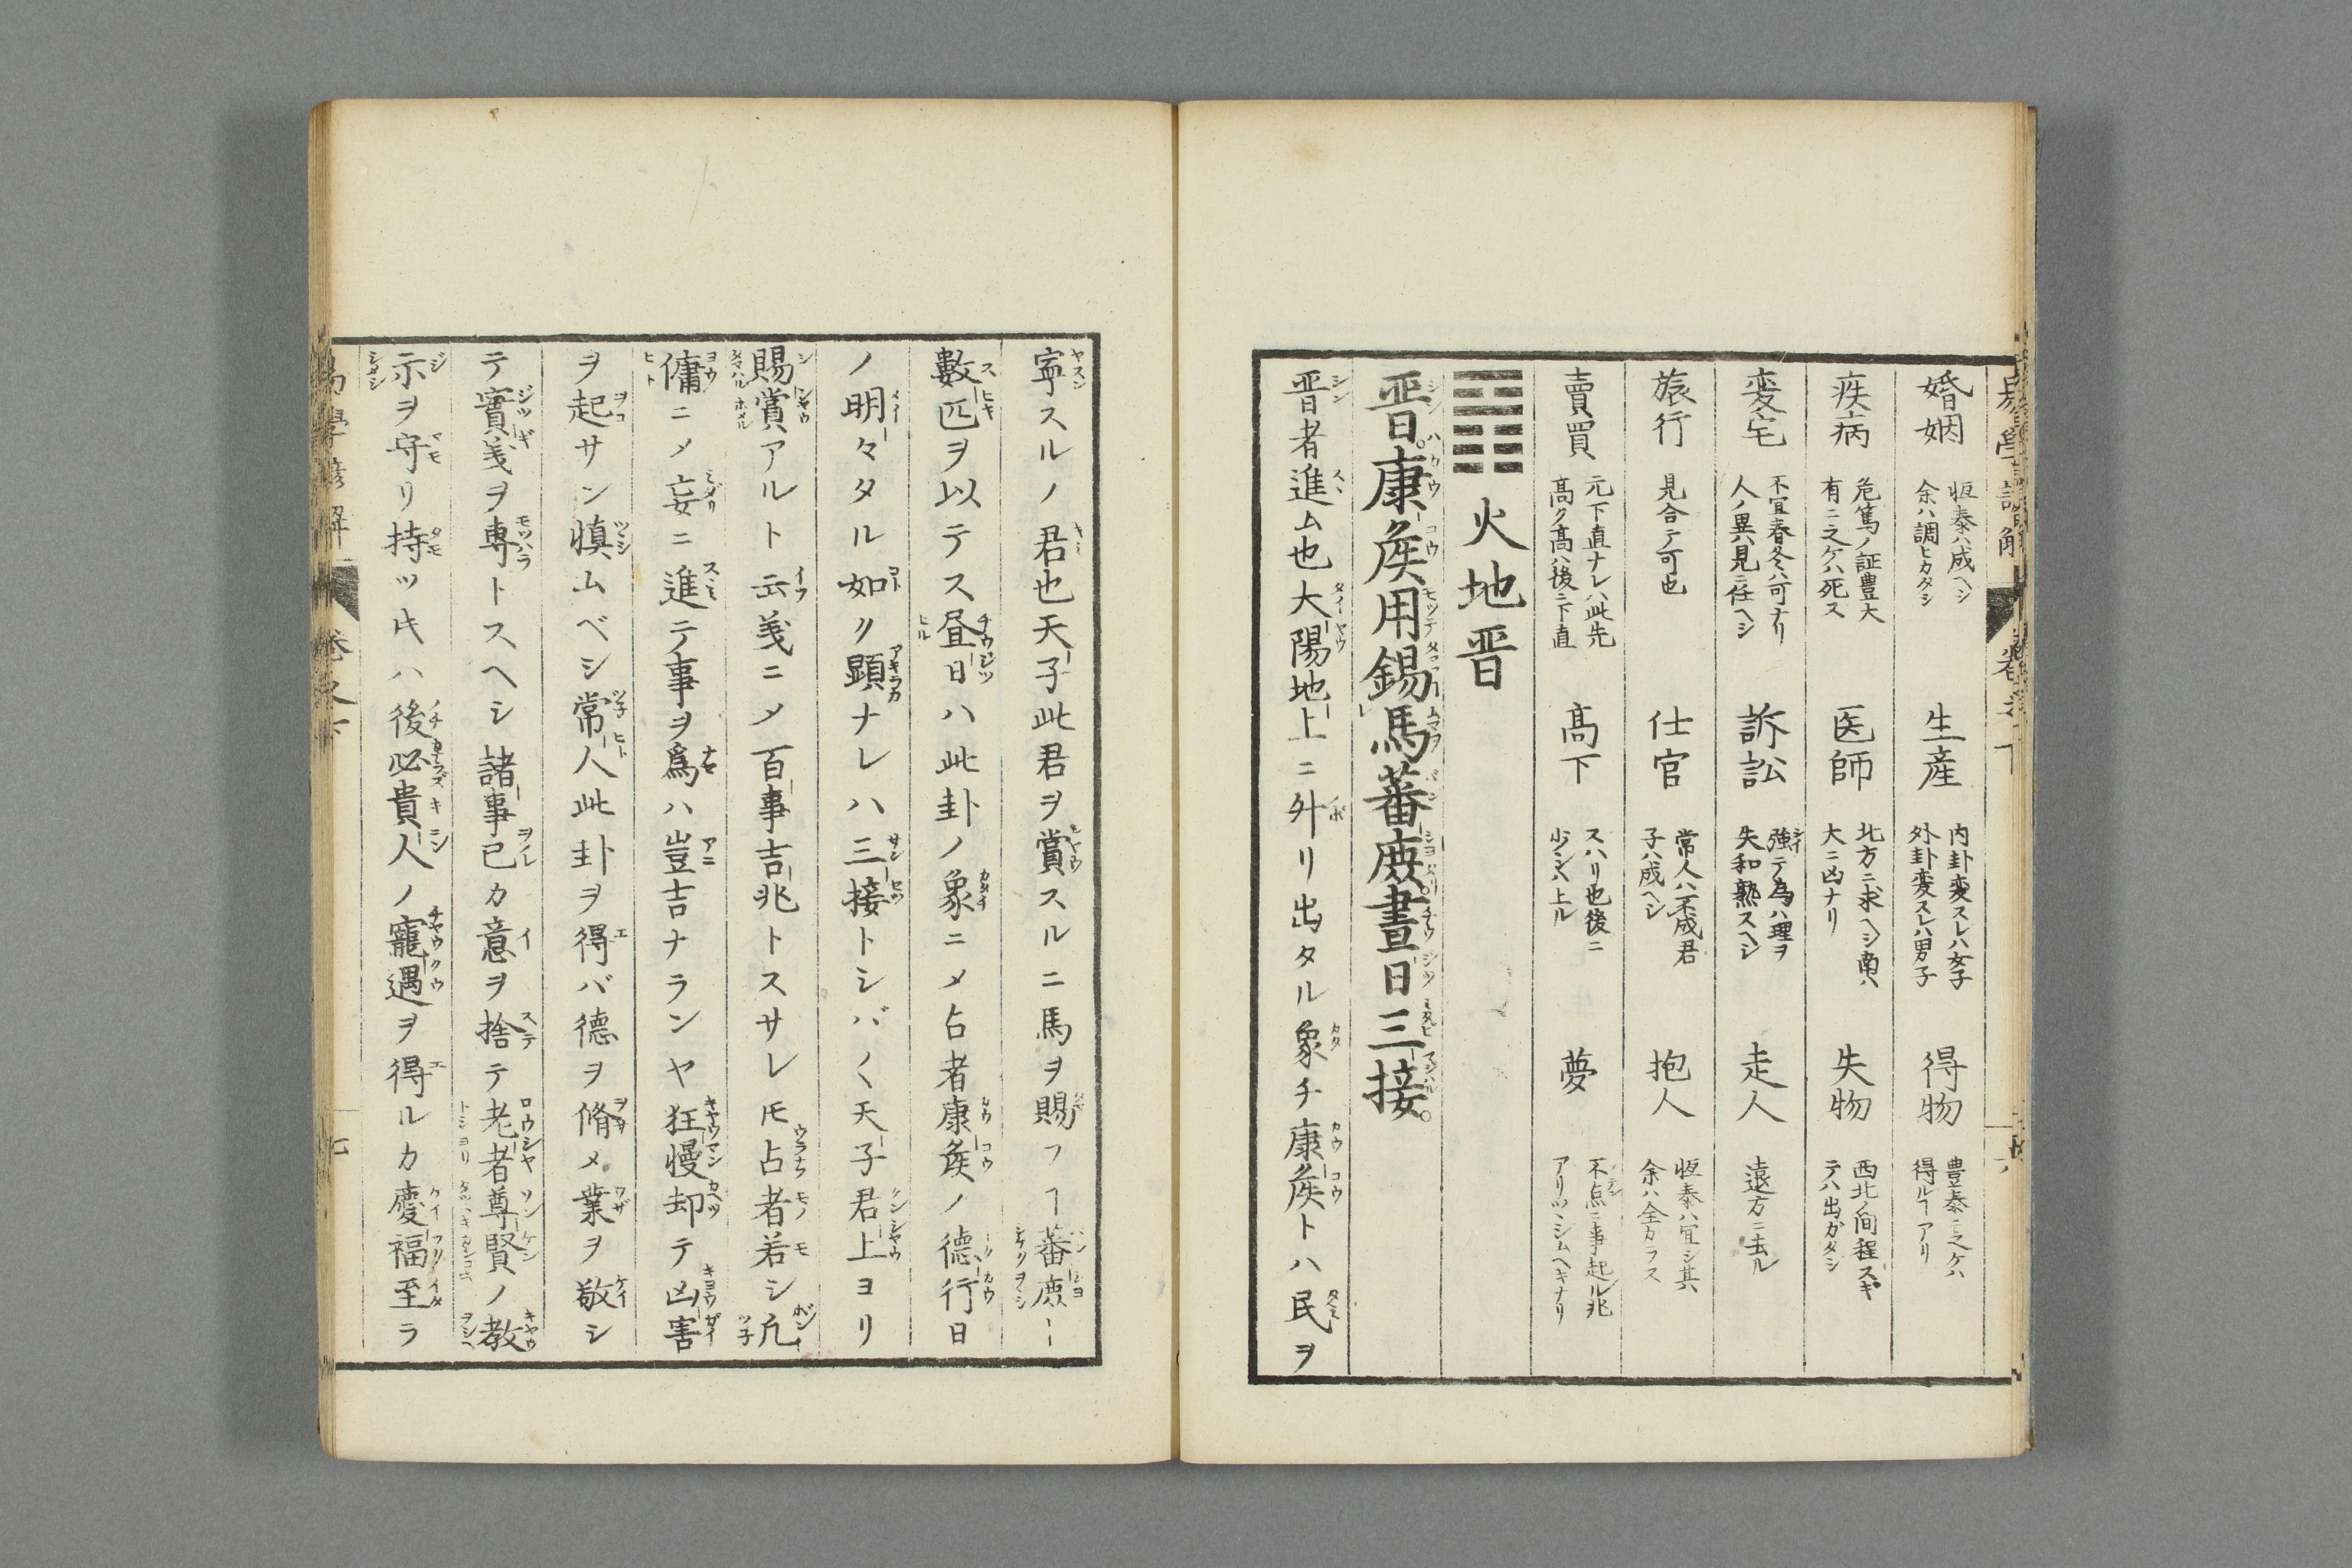 婚姻 恒泰ハ成ヘシ余ハ調ヒカタシ 生産 内卦変スレハ女子外卦変スレハ男子 得物 豊泰ニ之ケハ得ルヿアリ
疾病 危篤ノ証豊大有ニ之ケハ死ス 医師 北方ニ求ヘシ南ハ大ニ凶ナリ 失物 西北ノ间程スキテハ出ガタシ
変宅 不宜春冬ハ可ナリ人ノ異見ニ任ヘシ 訴訟 強テ為ハ理ヲ失和熟スヘシ 走人 遠方ニ去ル
旅行 見合テ可也 仕官 常人ハ不成君子ハ成ヘシ 抱人 恒泰ハ宜シ其余ハ全カラス
賣買 元下直ナレハ此先高ク高ハ後ニ下直 高下 スハリ也後ニ少シハ上ル 夢 不点ニ事起ル兆アリツヽシムヘキナリ
䷢ 火地晋
晋康矦用錫馬蕃庶晝日三接
晋者進ム也大陽地上ニ升リ出タル象チ康矦トハ民ヲ
寧スルノ君也天子此君ヲ賞スルニ馬ヲ賜フヿ蕃庶ニ
數匹ヲ以テス昼日ハ此卦ノ象ニメ占者康矦ノ德行日
ノ明々タル如ク顕ナレハ三接トシバ〱天子君上ヨリ
賜賞アルト云義ニメ百事吉兆トスサレ𪜈占者若シ凢
傭ニメ妄ニ進テ事ヲ爲ハ豈吉ナランヤ狂慢却テ凶害
ヲ起サン慎ムベシ常人此卦ヲ得バ德ヲ脩メ業ヲ敬シ
テ實義ヲ専トスヘシ諸事己カ意ヲ捨テ老者尊賢ノ教
示ヲ守リ持ツ𪜈ハ後必貴人ノ寵遇ヲ得ルカ慶福至ラ